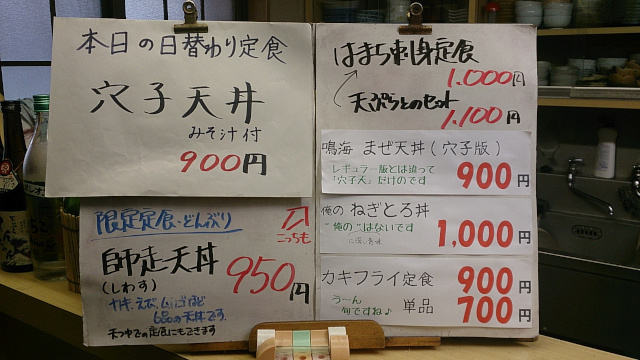 本日の日替わり定食
穴子天丼
みそ汁付
900円
限定定食・どんぶり
こっちも
師走天丼
(しわす)
950円
6品の天丼です
天つゆでの定食にもできます
はまち刺身定食
1,000円
天ぷらとのセット
1,100円
鳴海 まぜ天丼(穴子版)
レギュラー版とは違って
「穴子天」だけのです
900円
俺の ねぎとろ丼
1,000円
カキフライ定食 900円
うーん
旬ですね♪
単品 700円